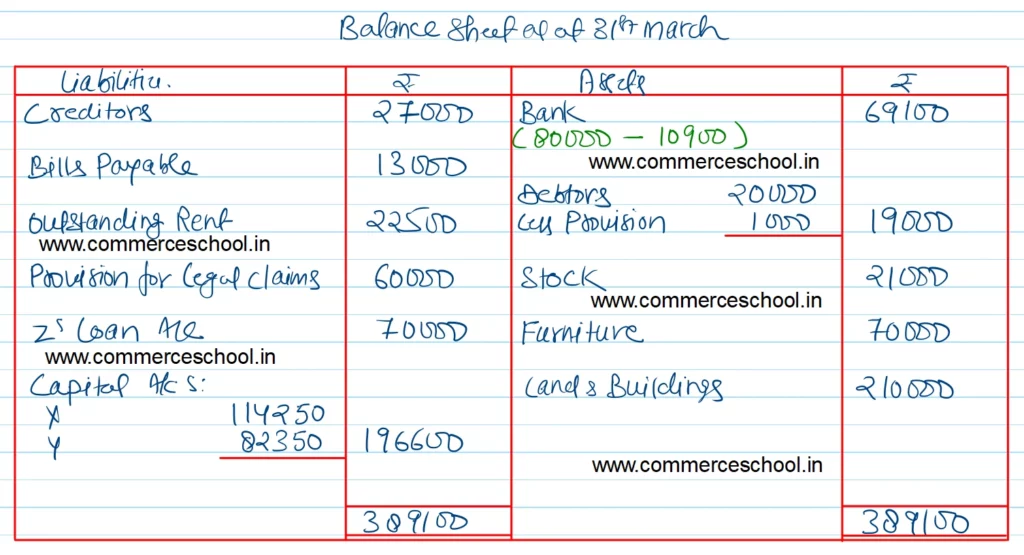 Balance Sheet as at 31st march
Liabilities. ₹ Assets ₹
Creditors 27000 Bank 69100
(80000 - 10900)
Bills Payable 13000 www.commerceschool.in
Debtors 20000
Outstanding Rent 22500 Less Provision 1000 19000
www.commerceschool.in
Provision for Legal claims 60000 Stock 21000
www.commerceschool.in
Z's Loan A/c 70000 Furniture 70000
www.commerceschool.in
Capital A/c s: Land & Buildings 210000
X 114250
Y 82350 196600
www.commerceschool.in
389100 389100